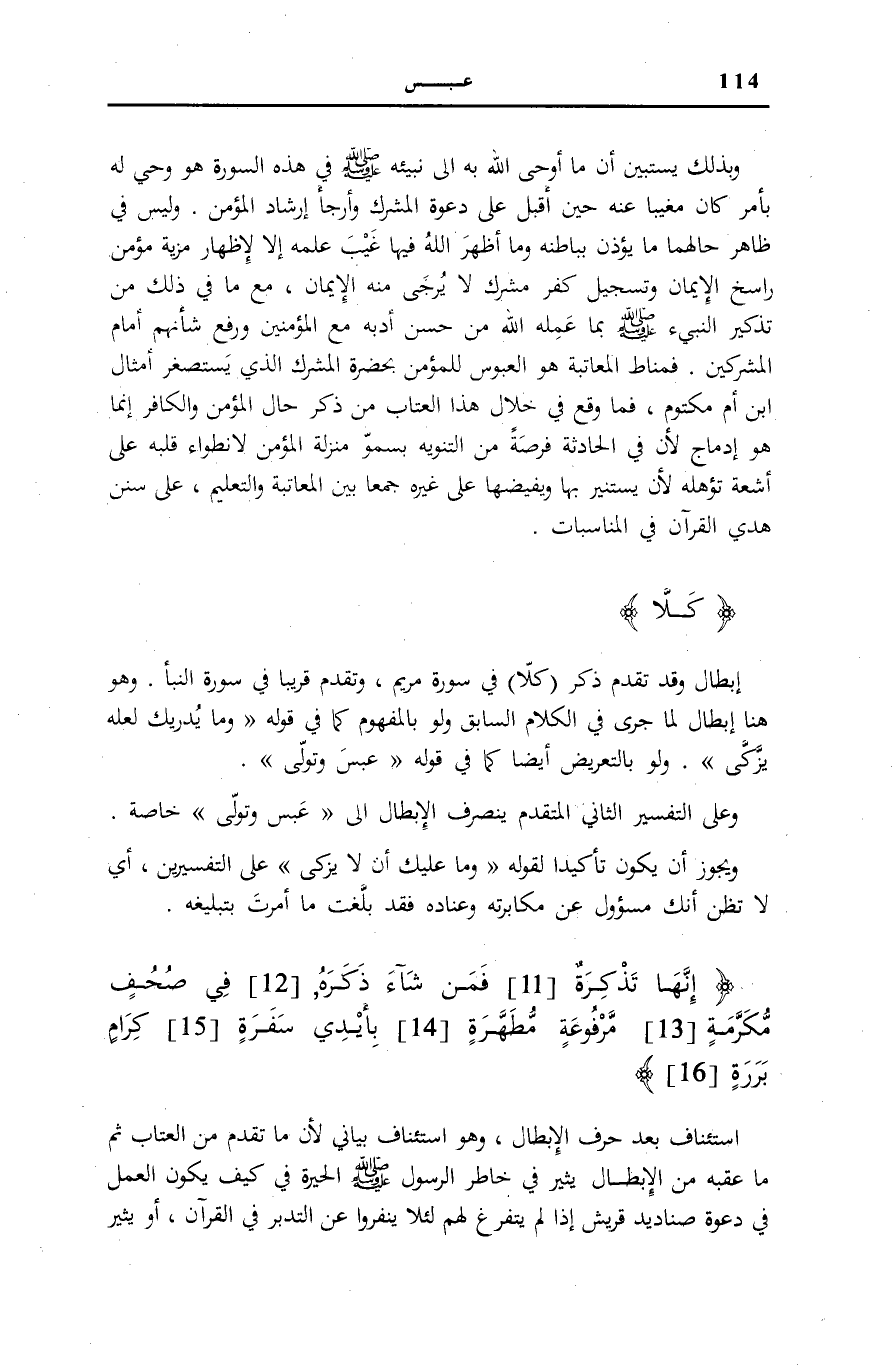 114
عبـــس
وبذلك يستبين أن ما أوحى الله به الى نبيئه ﷺ في هذه السورة هو وحي له
بأمر كان مغيبا عنه حين أقبل على دعوة المشرك وأرجأ إرشاد المؤمن . وليس في
ظاهر حالهما ما يؤذن بباطنه وما أظهرَ اللهُ فيها غَيْبَ علمه إلا لإظهار مزية مؤمن
راسخ الإيمان وتسجيل كفر مشرك لا يُرجَى منه الإيمان ، مع ما في ذلك من
تذكير النبيء ﷺ بما عَمِله الله من حسن أدبه مع المؤمنين ورفع شأنهم أمام
المشركين . فمناط المعاتبة هو العبوس للمؤمن بحضرة المشرك الذي يَستصغر أمثال
ابن أم مكتوم ، فما وقع في خلال هذا العتاب من ذكر حال المؤمن والكافر إنما
هو إدماج لأن في الحادثة فرصَةً من التنويه بسموّ منزلة المؤمن لانطواء قلبه على
أشعة تؤهله لأن يستنير بها ويفيضها على غيره جمعا بين المعاتبة والتعليم ، على سنن
هدي القرآن في المناسبات .
﴿ كَـلَّا ﴾
إبطال وقد تقدم ذكر (كلّا) في سورة مريم ، وتقدم قريبا في سورة النبأ . وهو
هنا إبطال لما جرى في الكلام السابق ولو بالمفهوم كما في قوله « وما يُدريك لعله
يزَّكَّى » . ولو بالتعريض أيضا كما في قوله « عبسَ وتولّى » .
وعلى التفسير الثاني المتقدم ينصرف الإبطال الى « عَبس وتولّى » خاصة .
ويجوز أن يكون تأكيدا لقوله « وما عليك أن لا يزكى » على التفسيرين ، أي
لا تظن أنك مسؤول عن مكابرته وعناده فقد بلَّغت ما أمرتَ بتبليغه .
﴿ إِنَّهَـا تَذْكِـرَةٌ [11] فَمَـن شَـآءَ ذَكَـرَهُۥ [12] فِي صُحُـفٍ
مُّكَرَّمَـةٍ [13] مَّرْفُوعَةٍ مُّطَهَّـرَةٍ [14] بِأَيْـدِي سَفَـرَةٍ [15] كِرَامٍ
بَرَرَةٍ [16] ﴾
استئناف بعد حرف الإبطال ، وهو استئناف بياني لأن ما تقدم من العتاب ثم
ما عقبه من الإبطـال يثير في خاطر الرسول ﷺ الحيرة في كيف يكون العمل
في دعوة صناديد قريش إذا لم يتفرغ لهم لئلا ينفروا عن التدبر في القرآن ، أو يثير